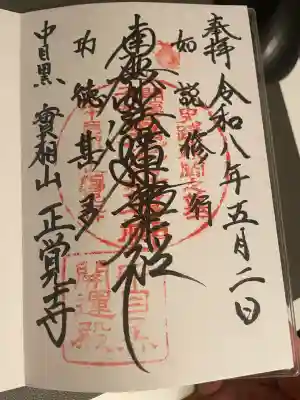 奉拝 令和八年五月二日
如説修行
南無妙法蓮華経
功徳甚多
中目黒 實相山 正覚寺
開運殿